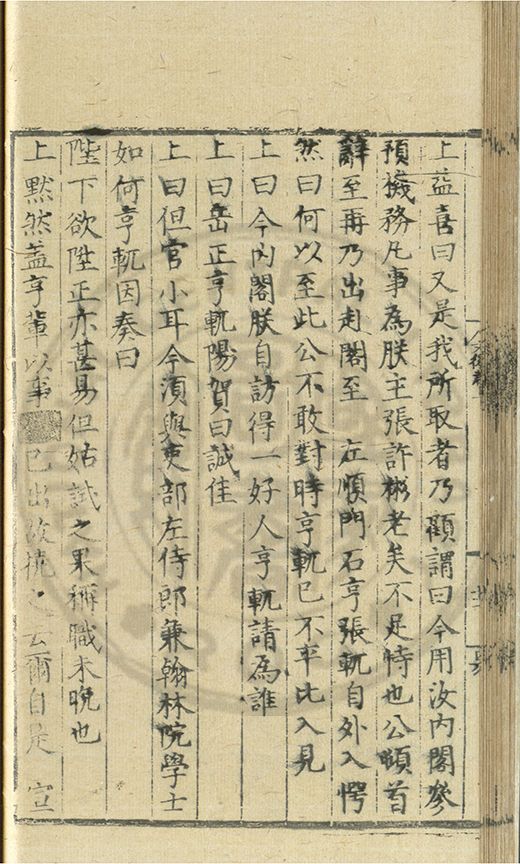 上益喜曰又是我所取者乃顧謂曰今用汝内閣參
預機務凡事為朕主張許彬老矣不足恃也公頓首
辭至再乃出赴閣至 左順門石亨張軏自外入愕
然曰何以至此公不敢對時亨軏已不平比入見
上曰今内閣朕自訪得一好人亨軏請為誰
上曰岳正亨軏陽賀曰誠佳
上曰但官小耳今湏與吏部左侍郎兼翰林院學士
如何亨軏因奏曰
陛下欲陞正亦甚易但姑試之果稱職未晩也
上默然盖亨輩以事 已出故撓之云爾自是 宣